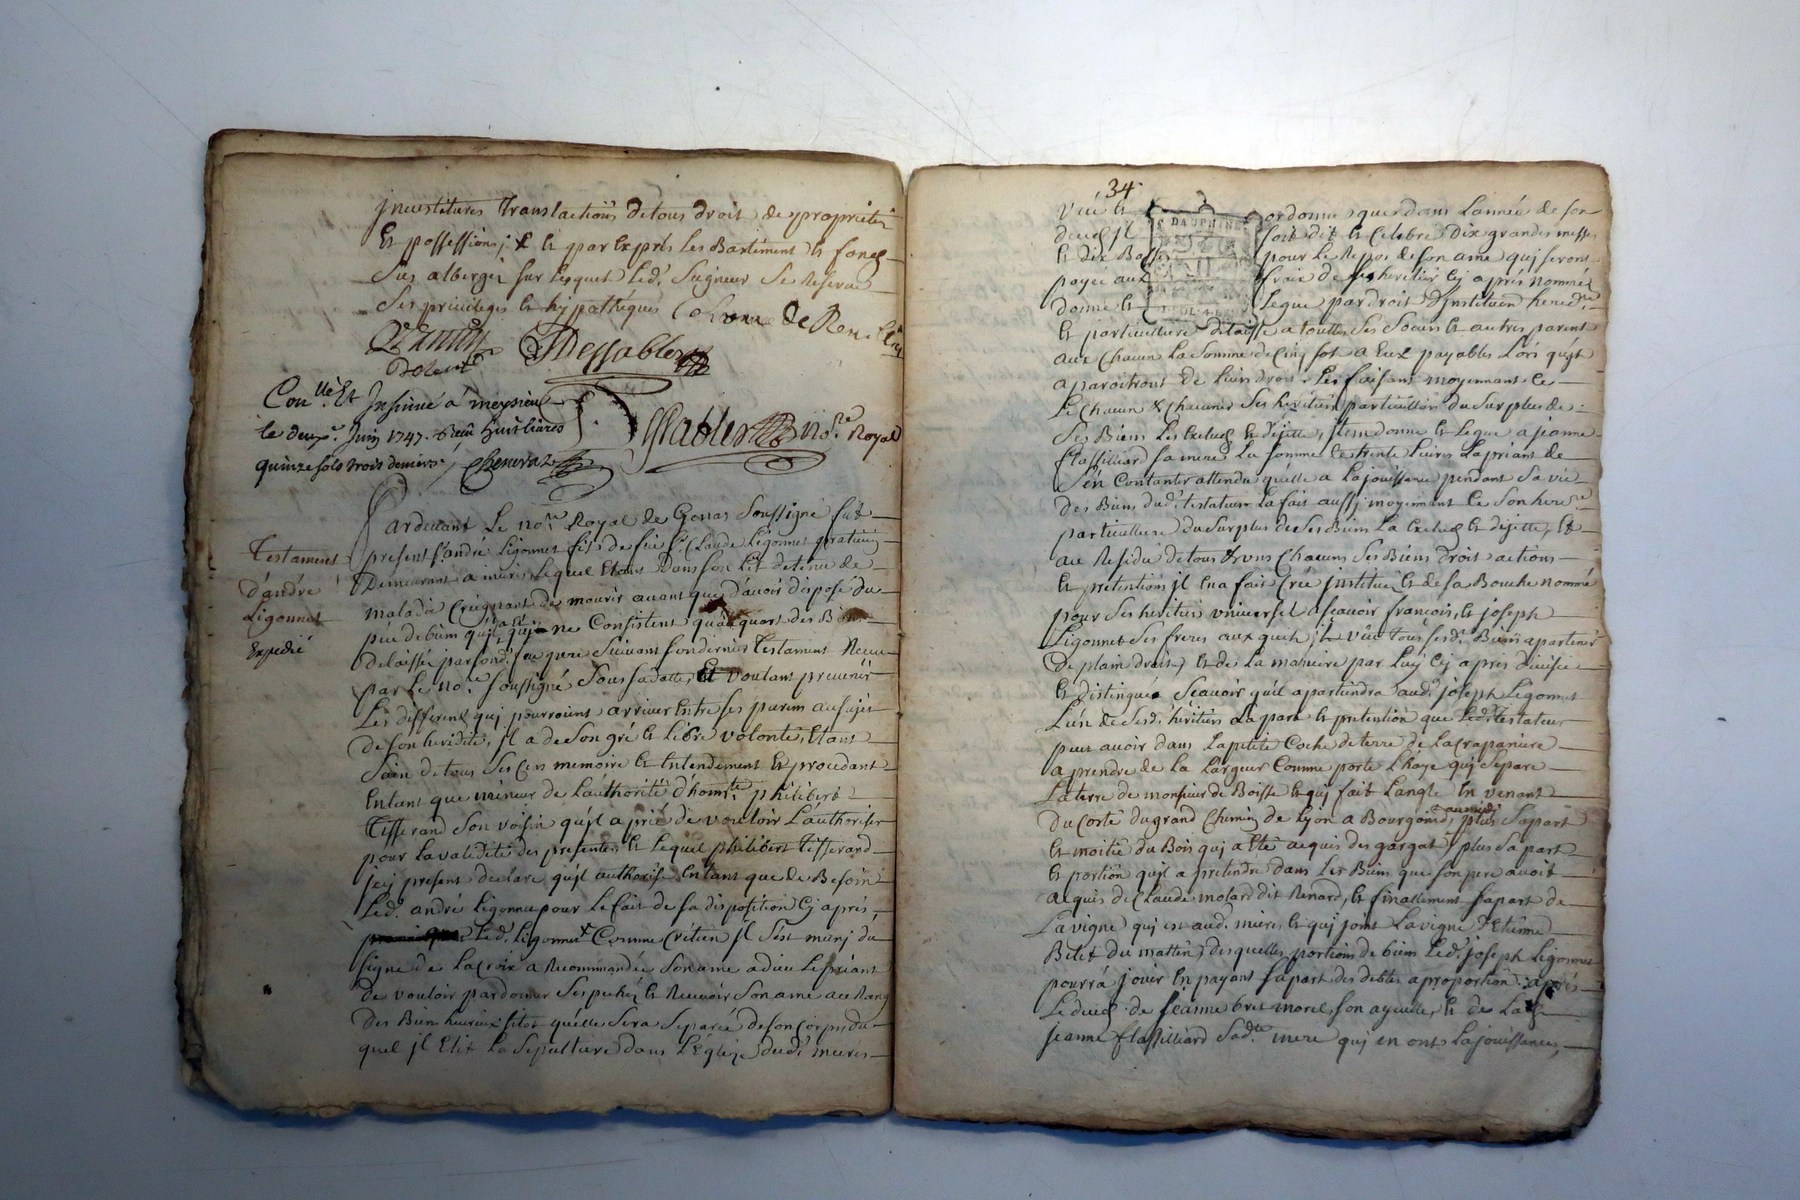 Jnvestitures translactions detous droit de propriété
Et possessions, & Et par Exprés les Bastiment Et fonds
Sus albergés sur lesquels led. Seigneur Se Reserve
Ses privileges Et hypotheques
Dessables
Con.lle Et Jnsinué a meysieu
le deux.e Juin 1747. Reçu huit livres
quinze sols trois deniers
Chenevaz
Dessables No.re Royal
Testament
d'andré
Ligonnet
Expedié
Pardevant Le no.re Royal de Genas soussigné fût
present s.r andré Ligonnet fils de feu s.r Claude Ligonnet
Demeurant a mions Lequel Etant dans son Lit detenu de
maladie Craignant de mourir avant que d'avoir disposé du
peu de bien qu'il a qui ne Consistent qu'aux quart des Biens
delaissés par sond. feu pere Suivant son dernier Testament Receu
par Le no.re soussigné sous sa datte, Et voulant prevenir
Les differents qui pourroient arriver Entre ses parens au sujet
de son heredité, jl a de son gré Et libre volonté, Etant
Sain de tous Ses Cens memoire Et Entendement Et procedant
Entant que mineur de L'authorité d'hom.te philibert
Tisserand son voisin qu'il a prié de vouloir L'authoriser
pour la validité des presentes Et Lequel philibert Tisserand
jcy present declare qu'jl authorise Entant que de Besoin
Led. andré Ligonnet pour le fait de sa disposition Cy aprés,
Led. Ligonnet Comme Crétien jl S'est muni du
signe de La Croix a Recommandée Son ame a dieu Le priant
de vouloir pardonner Ses pechés Et Recevoir Son ame au Rang
Des Bien heureux sitot qu'elle Sera Separée de son Corps du
quel jl Elit La Sepulture dans L'Eglise dud. mions
34
DAUPHINÉ
ordonne que dans L'année de son
deces jl soit dit Et Celebré Dix grandes messes
Et dix Basses pour le Repos de son ame qui seront
payé aux fraix de ses heritiers Cy aprés nommés
donne Et Legue par droit d'Institution hered.re
Et particuliere delaisse a toutes Ses Soeurs Et autres parent
aux Chacun La Somme de Cinq sols a Eux payables Lors qu'jls
aparoitront de leurs droits Les faisant moyennant Ce
Le Chacun & Chacunes Ses heritiers particuliers du Surplus de
Ses Biens Les Exclud Et déjette, Jtem donne Et Legue a jeanne
flassilliard sa mere La somme de trente Livres La priant de
S'en Contanter attendu qu'elle a La jouissance pendant Sa vie
des Biens dud. testateur La fais aussi moyennant Ce Son here.re
particulliere du Surplus de Ses Biens La Exclud Et dejette, Et
au Residu de tous & uns Chacuns Ses Biens droit actions
Et pretentions jl En a fait Crée jnstitué Et de Sa Bouche nommé
pour Ses heritiers universel a sçavoir françois, Et joseph
Ligonnet Ses freres aux quels jl veut tous Sesd. Biens apartenir
de plain droit, Et de La maniere par Luy Cy aprés divisée
Et distinguée Sçavoir qu'il apartiendra aud. joseph Ligonnet
L'un de Sesd. heritiers La part Et pretention que Led. testateur
peut avoir dans La petite Coche de terre de La Crapaniere
a prendre de La Largeur Comme porte L'haye qui Separe
La terre de monsieur de Boisse Et qui fait Langle En venant
du Coté du grand Chemin de Lyon a Bourgoin, plus Sa part
Et moitié du Bois qui a Eté acquis des gargat, plus Sa part
Et portion qu'jl a pretendre dans Les Biens que son pere avoit
acquis de Claude molard dit Renard, Et finallement Sa part de
La vigne qui est aud. mions, Et qui joint La vigne d'Etienne
Belet du matin, desquelles portions de biens Led. joseph Ligonnet
pourrá jouir En payant Sa part des debtes a proportion aprés
Le deces de jeanne morel son ayeulle, Et de Lad.
jeanne flassilliard Sad.te mere qui en ont La jouissance,